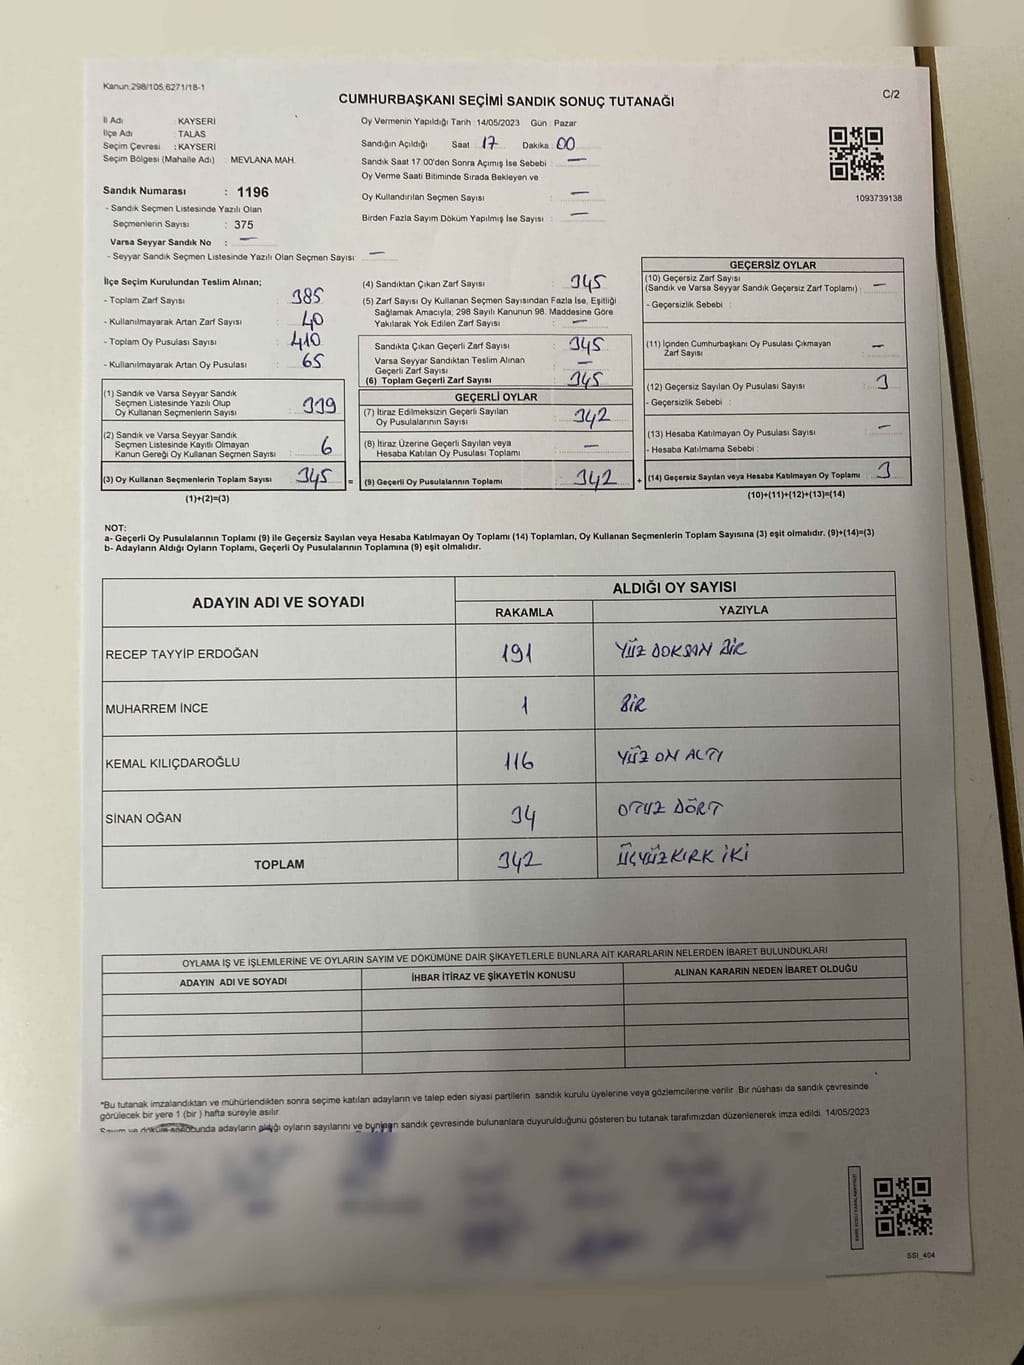 Kanun,298/105;6271/18-1
C/2
CUMHURBAŞKANI SEÇİMİ SANDIK SONUÇ TUTANAĞI
İl Adı : KAYSERİ
İlçe Adı : TALAS
Seçim Çevresi : KAYSERİ
Seçim Bölgesi (Mahalle Adı) : MEVLANA MAH.
Sandık Numarası : 1196
- Sandık Seçmen Listesinde Yazılı Olan
Seçmenlerin Sayısı : 375
Varsa Seyyar Sandık No : —
- Seyyar Sandık Seçmen Listesinde Yazılı Olan Seçmen Sayısı: —
Oy Vermenin Yapıldığı Tarih : 14/05/2023 Gün : Pazar
Sandığın Açıldığı Saat 17 Dakika : 00
Sandık Saat 17:00'den Sonra Açımış İse Sebebi : —
Oy Verme Saati Bitiminde Sırada Bekleyen ve
Oy Kullandırılan Seçmen Sayısı : —
Birden Fazla Sayım Döküm Yapılmış İse Sayısı : —
1093739138
İlçe Seçim Kurulundan Teslim Alınan;
- Toplam Zarf Sayısı : 385
- Kullanılmayarak Artan Zarf Sayısı : 40
- Toplam Oy Pusulası Sayısı : 410
- Kullanılmayarak Artan Oy Pusulası : 65
(1) Sandık ve Varsa Seyyar Sandık
Seçmen Listesinde Yazılı Olup
Oy Kullanan Seçmenlerin Sayısı : 339
(2) Sandık ve Varsa Seyyar Sandık
Seçmen Listesinde Kayıtlı Olmayan
Kanun Gereği Oy Kullanan Seçmen Sayısı : 6
(3) Oy Kullanan Seçmenlerin Toplam Sayısı : 345 =
(1)+(2)=(3)
(4) Sandıktan Çıkan Zarf Sayısı : 345
(5) Zarf Sayısı Oy Kullanan Seçmen Sayısından Fazla İse, Eşitliği
Sağlamak Amacıyla, 298 Sayılı Kanunun 98. Maddesine Göre
Yakılarak Yok Edilen Zarf Sayısı : —
Sandıkta Çıkan Geçerli Zarf Sayısı : 345
Varsa Seyyar Sandıktan Teslim Alınan
Geçerli Zarf Sayısı : —
(6) Toplam Geçerli Zarf Sayısı : 345
GEÇERLİ OYLAR
(7) İtiraz Edilmeksizin Geçerli Sayılan
Oy Pusulalarının Sayısı : 342
(8) İtiraz Üzerine Geçerli Sayılan veya
Hesaba Katılan Oy Pusulası Toplamı : —
(9) Geçerli Oy Pusulalarının Toplamı : 342 +
GEÇERSİZ OYLAR
(10) Geçersiz Zarf Sayısı
(Sandık ve Varsa Seyyar Sandık Geçersiz Zarf Toplamı) : —
- Geçersizlik Sebebi :
(11) İçinden Cumhurbaşkanı Oy Pusulası Çıkmayan
Zarf Sayısı : —
(12) Geçersiz Sayılan Oy Pusulası Sayısı : 3
- Geçersizlik Sebebi :
(13) Hesaba Katılmayan Oy Pusulası Sayısı : —
- Hesaba Katılmama Sebebi :
(14) Geçersiz Sayılan veya Hesaba Katılmayan Oy Toplamı : 3
(10)+(11)+(12)+(13)=(14)
NOT:
a- Geçerli Oy Pusulalarının Toplamı (9) ile Geçersiz Sayılan veya Hesaba Katılmayan Oy Toplamı (14) Toplamları, Oy Kullanan Seçmenlerin Toplam Sayısına (3) eşit olmalıdır. (9)+(14)=(3)
b- Adayların Aldığı Oyların Toplamı, Geçerli Oy Pusulalarının Toplamına (9) eşit olmalıdır.
ADAYIN ADI VE SOYADI
ALDIĞI OY SAYISI
RAKAMLA YAZIYLA
RECEP TAYYİP ERDOĞAN 191 YÜZ DOKSAN BİR
MUHARREM İNCE 1 BİR
KEMAL KILIÇDAROĞLU 116 YÜZ ON ALTI
SİNAN OĞAN 34 OTUZ DÖRT
TOPLAM 342 ÜÇYÜZKIRK İKİ
OYLAMA İŞ VE İŞLEMLERİNE VE OYLARIN SAYIM VE DÖKÜMÜNE DAİR ŞİKAYETLERLE BUNLARA AİT KARARLARIN NELERDEN İBARET BULUNDUKLARI
ADAYIN ADI VE SOYADI İHBAR İTİRAZ VE ŞİKAYETİN KONUSU ALINAN KARARIN NEDEN İBARET OLDUĞU
*Bu tutanak imzalandıktan ve mühürlendikten sonra seçime katılan adayların ve talep eden siyasi partilerin sandık kurulu üyelerine veya gözlemcilerine verilir .Bir nüshası da sandık çevresinde
görülecek bir yere 1 (bir ) hafta süreyle asılır.
Sayım ve döküm sonucunda adayların aldığı oyların sayılarını ve bunların sandık çevresinde bulunanlara duyurulduğunu gösteren bu tutanak tarafımızdan düzenlenerek imza edildi. 14/05/2023
SSİ_404